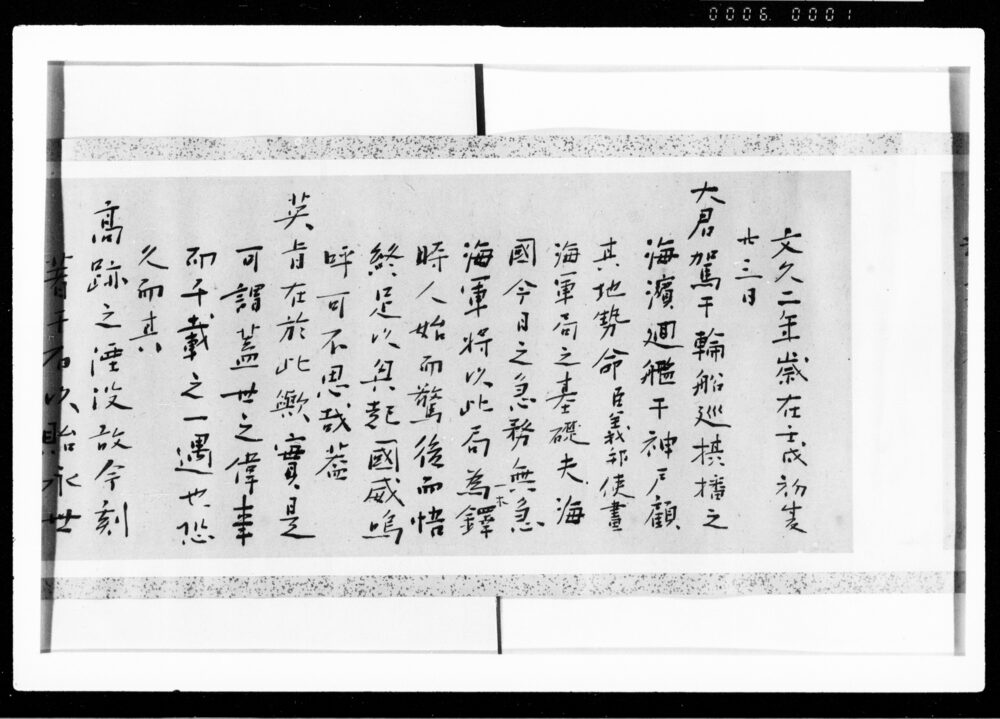 0006 0001
文久二年歳在壬戌初夏
廿三日
大君駕于輪船巡摂播之
海濱廻艦于神戸顧
其地勢命臣義邦使畫
海軍局之基礎夫海
國今日之急務無急
於
海軍將以此局為鐸
時人始而驚後而悟
終足以興起國威嗚
呼可不思哉蓋
英旨在於此歟實是
可謂蓋世之偉事
而千載之一遇也恐
久而其
高跡之湮没故今刻
著于石以貽永世